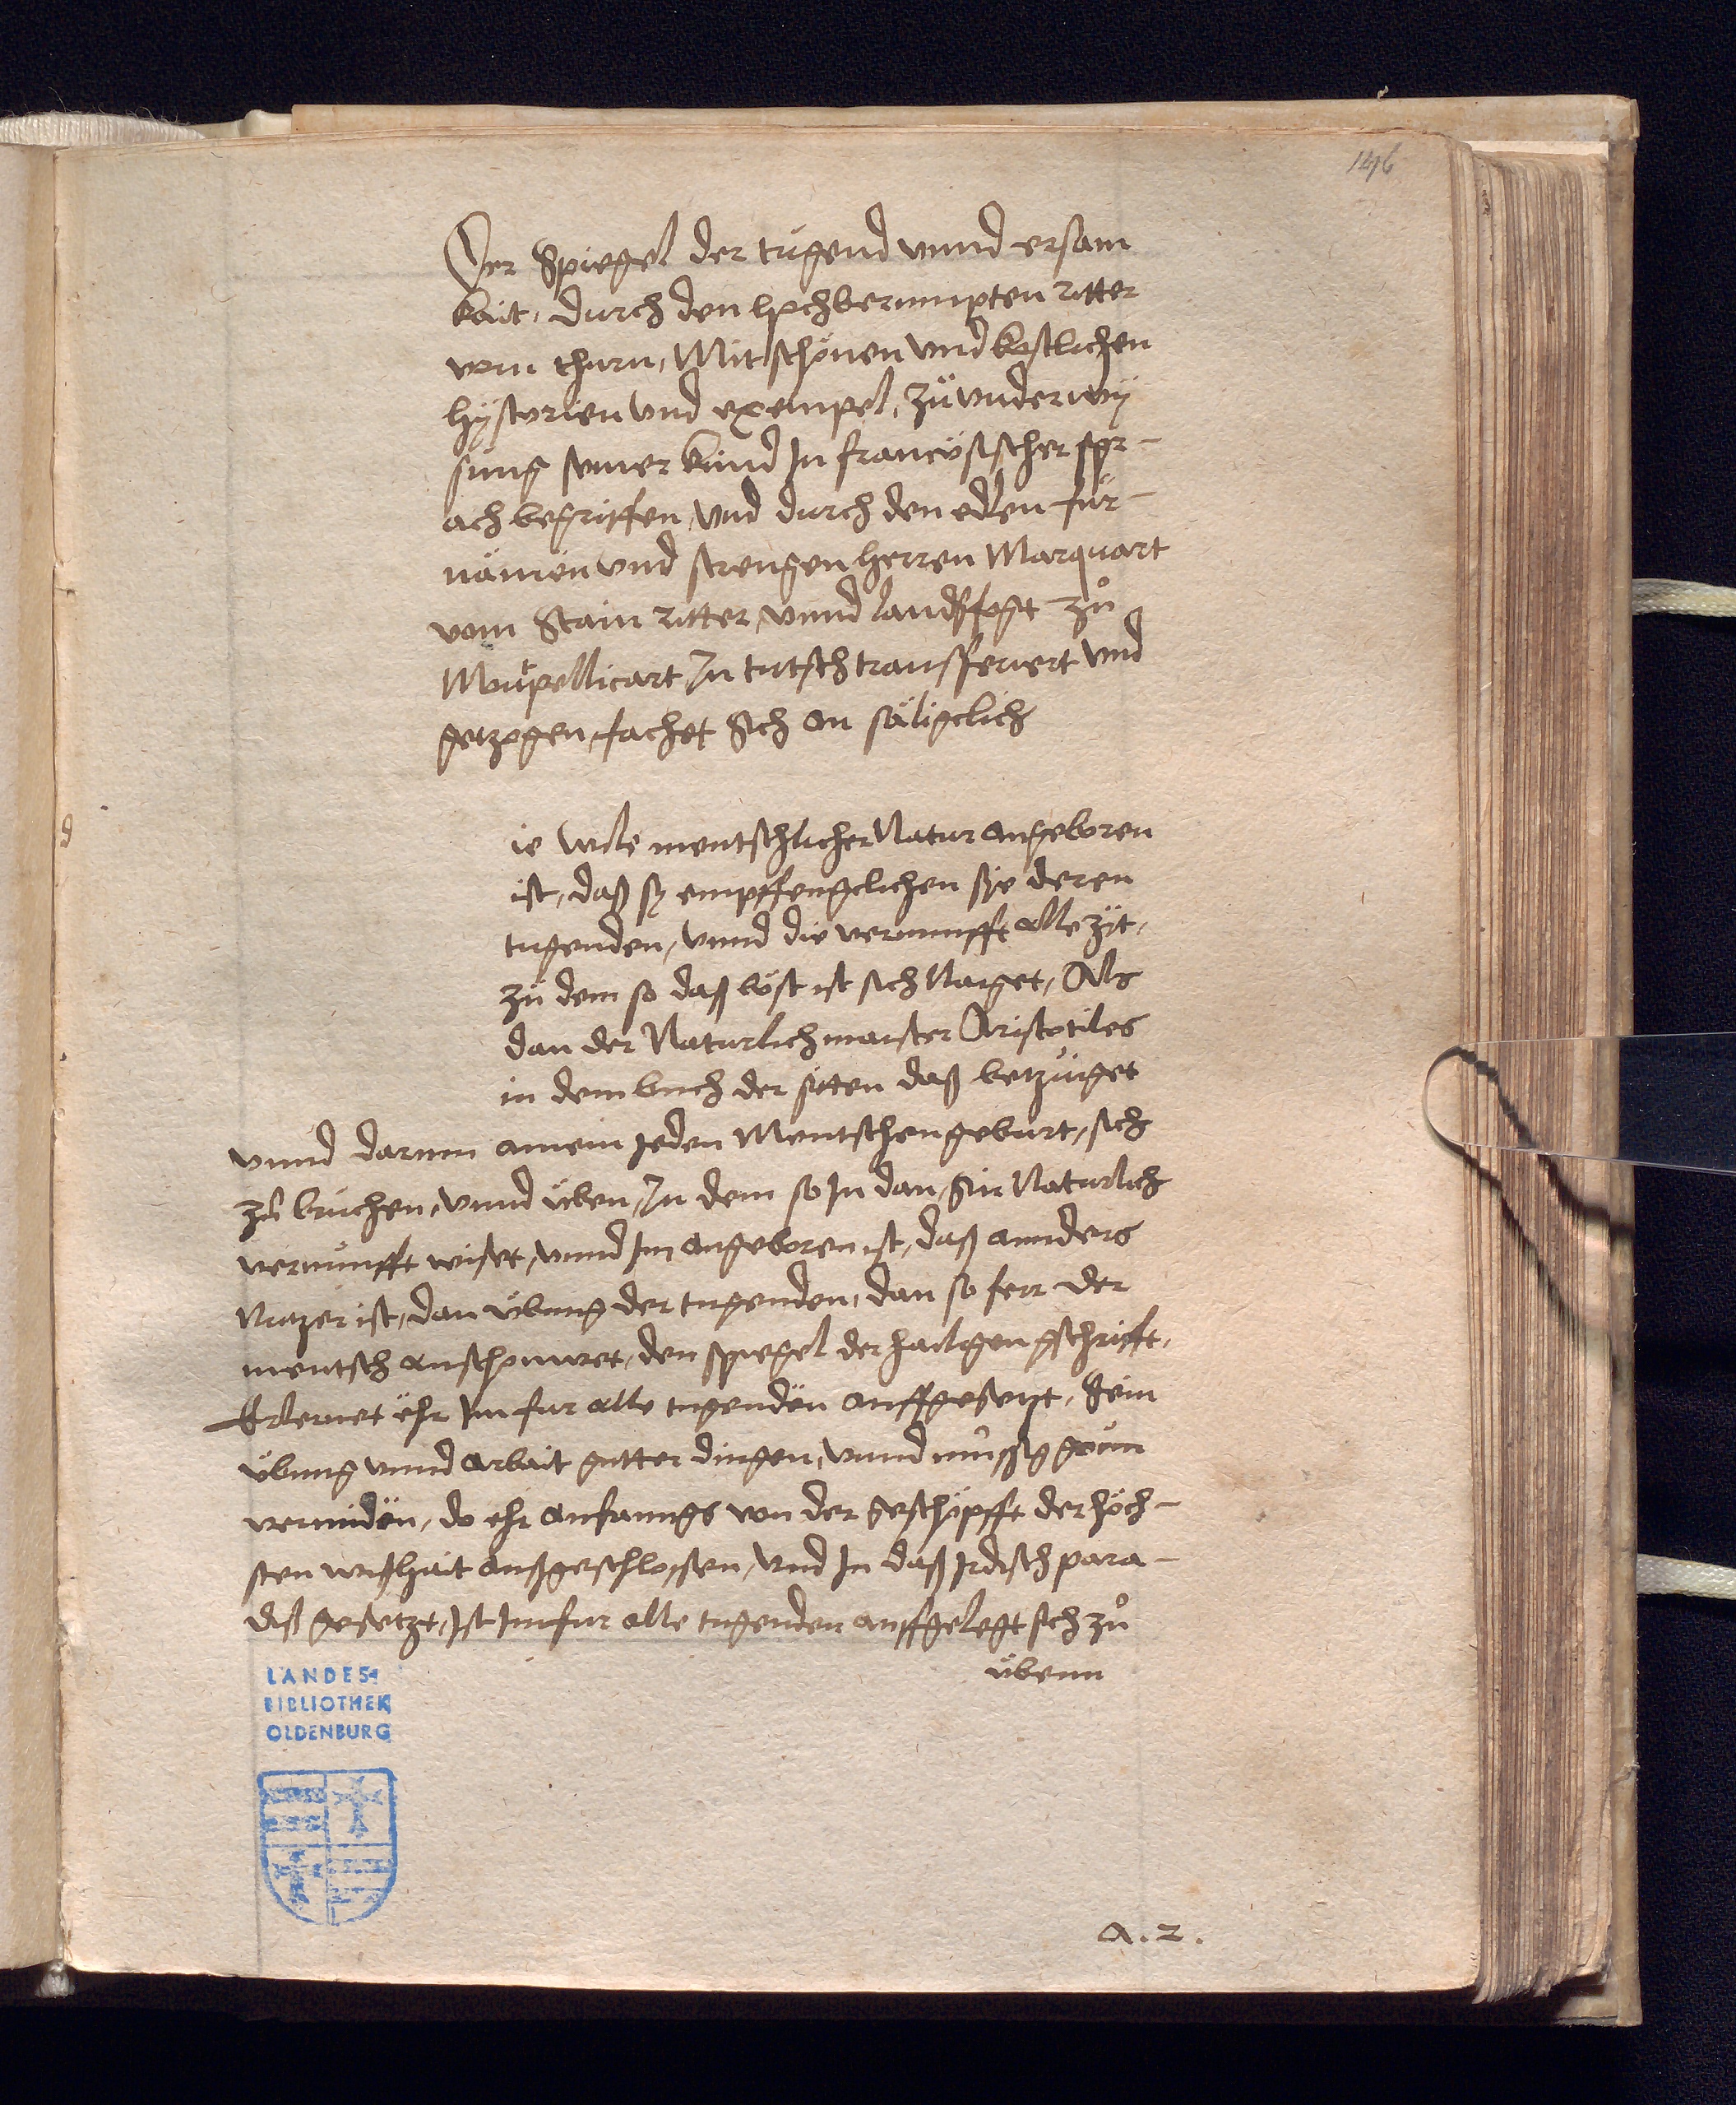 146
Der Spiegel der tugend vnnd ersam
kait, durch den hochberumpten ritter
vom thurn, Mit schönen vnd kostlichen
hÿstorien vnd exempel, zü vnderwÿ
sung seiner kind In francösischer spr-
ach begriffen, vnd durch den edlen für-
nämen vnd strengen herren Marquart
vom Stain ritter, vnnd landtfogt zů
Mupellicart In tutsch transferiert vnd
getzogen, fachet Sich an säligclich
ie wile mentschlicher Natur angeboren
ist, daß sy empffengclichen sÿe deren
tugenden, vnnd die vernunfft alle zÿt,
zü dem so daß böst ist sich Naiget, Als
dan der Naturlich maister Aristotiles
in dem buch der sitten daß betzüiget
vnnd darum ainem jeden Mentschen gebürt, sich
zů bruchen, vnnd üben, In dem so In dan Sin Naturlich
vernunfft wiset, vnnd Im angeboren ist, daß annders
Nutzer ist, dan übung der tugenden, dan so ferr der
mentsch anschouwet, den spiegel der hailgen gschrifft,
Erlernet ehr Im fur alle tugenden auffgesetzt, Sein
übung vnnd arbait gutter dingen, vnnd müssig geun
vermiden, do ehr anfanngs von der geschöpfft der höch-
sten wishait außgeschlossen, vnd In daß Irdisch para-
diß gesetzt, Ist Im fur alle tugenden auffgelegt sich zů
übenn
LANDES-
BIBLIOTHEK
OLDENBURG
A. 2.